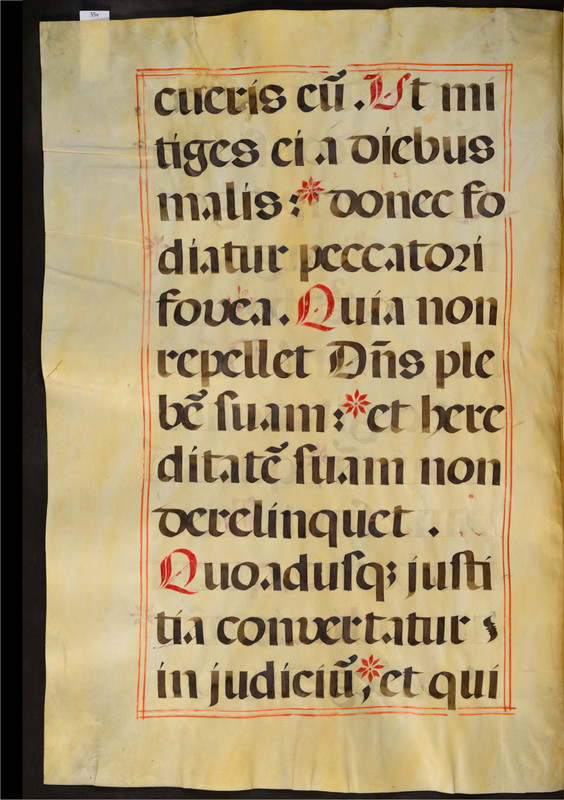 35v
cueris cũ. Ut mi
tiges ei a diebus
malis:* donec fo
diatur peccatori
fovea. Quia non
repellet Dñs ple
bẽ ſuam:* et here
ditatẽ ſuam non
derelinquet.
Quoaduſq; juſti
tia convertatur
in judiciũ,* et qui